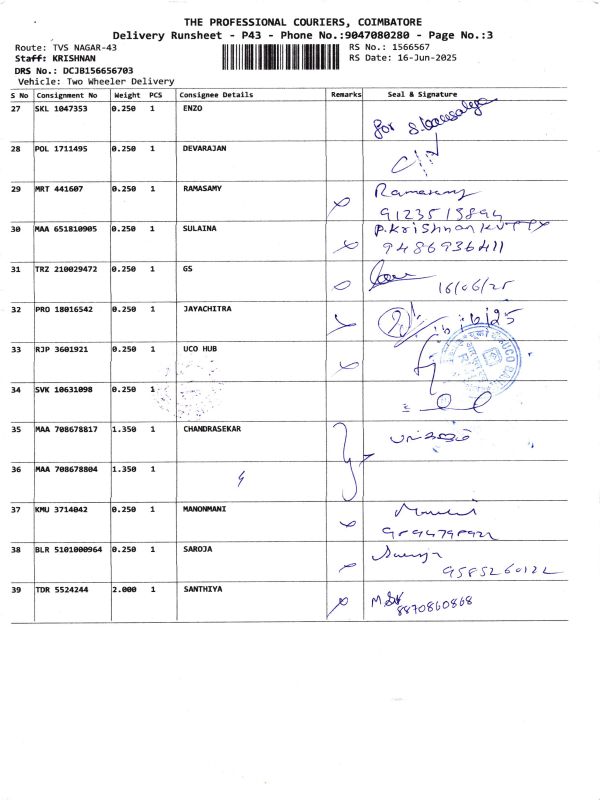 THE PROFESSIONAL COURIERS, COIMBATORE
Delivery Runsheet - P43 - Phone No.:9047080280 - Page No.:3
Route: TVS NAGAR-43
RS No.: 1566567
Staff: KRISHNAN
RS Date: 16-Jun-2025
DRS No.: DCJB156656703
Vehicle: Two Wheeler Delivery
S No Consignment No Weight PCS Consignee Details Remarks Seal & Signature
27 SKL 1047353 0.250 1 ENZO
for
28 POL 1711495 0.250 1 DEVARAJAN
29 MRT 441607 0.250 1 RAMASAMY Ramasamy
30 MAA 651810905 0.250 1 SULAINA P.KRISHNANKUTTY
9486936411
31 TRZ 210029472 0.250 1 GS
16/06/25
32 PRO 18016542 0.250 1 JAYACHITRA
33 RJP 3601921 0.250 1 UCO HUB
34 SVK 10631098 0.250 1
35 MAA 708678817 1.350 1 CHANDRASEKAR
36 MAA 708678804 1.350 1
37 KMU 3714042 0.250 1 MANONMANI
38 BLR 5101000964 0.250 1 SAROJA
9585260122
39 TDR 5524244 2.000 1 SANTHIYA
8870860868